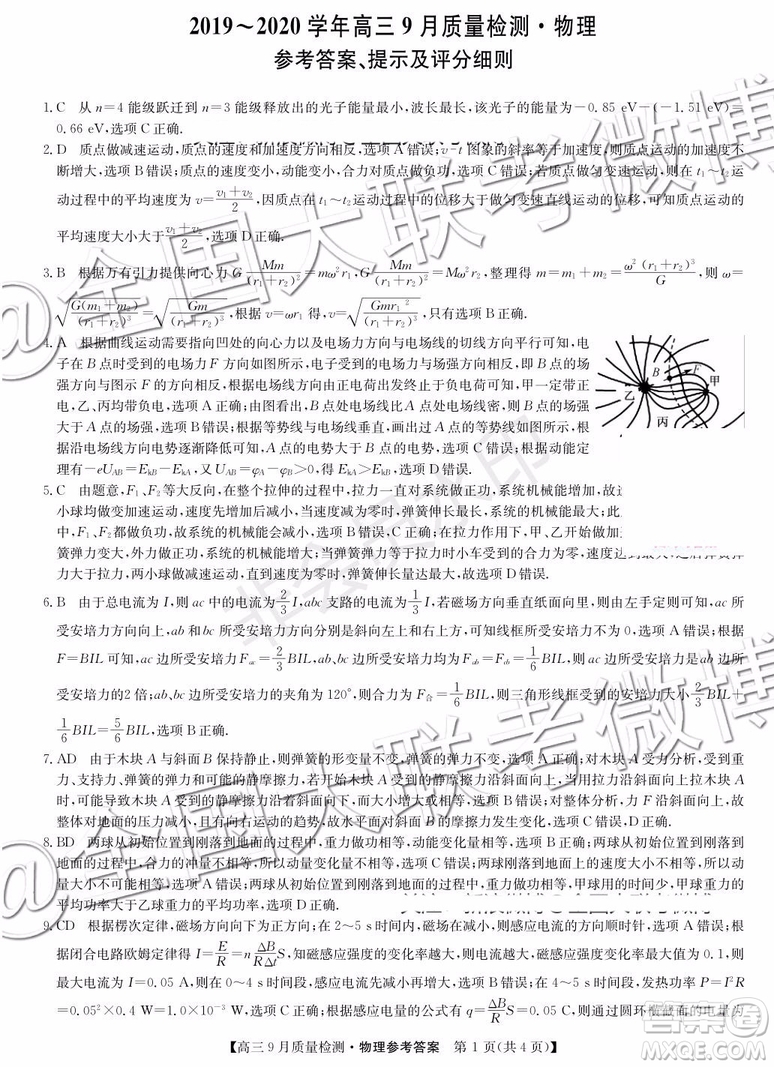 2019～2020 学年高三 9 月质量检测·物理
参考答案、提示及评分细则
1. C　从 n=4 能级跃迁到 n=3 能级释放出的光子能量最小,波长最长,该光子的能量为−0.85 eV−(−1.51 eV)=
0.66 eV,选项 C 正确.
2. D　质点做减速运动,质点的速度和加速度方向相反,选项 A 错误;v−t 图象的斜率等于加速度,则质点运动的加速度不
断增大,选项 B 错误;质点的速度变小,动能变小,合外力对质点做负功,选项 C 错误;若质点做匀变速运动,则在 t₁～t₂ 运
动过程中的平均速度为 v=(v₁+v₂)/2,因质点在 t₁～t₂ 运动过程中的位移大于做匀变速直线运动的位移,可知质点运动的
平均速度大小大于(v₁+v₂)/2,选项 D 正确.
3. B　根据万有引力提供向心力 G Mm/(r₁+r₂)²=mω²r₁,G Mm/(r₁+r₂)²=Mω²r₂,整理得 m=m₁+m₂=ω²(r₁+r₂)³/G,则 ω=
√(G(m₁+m₂)/(r₁+r₂)³)=√(Gm/(r₁+r₂)³),根据 v=ωr₁ 得,v=√(Gmr₁²/(r₁+r₂)³),只有选项 B 正确.
4. A　根据曲线运动需要指向凹处的向心力以及电场力方向与电场线的切线方向平行可知,电
子在 B 点时受到的电场力 F 方向如图所示,电子受到的电场力与场强方向相反,即 B 点的场
强方向与图示 F 的方向相反,根据电场线方向由正电荷出发终止于负电荷可知,甲一定带正
电,乙、丙均带负电,选项 A 正确;由图看出,B 点处电场线比 A 点处电场线密,则 B 点的场强
大于 A 点的场强,选项 B 错误;根据等势线与电场线垂直,画出过 B 点的等势线,
沿电场线方向电势逐渐降低可知,A 点的电势大于 B 点的电势,选项 C 错误;根据动能定
理有−eU_AB=E_kB−E_kA,又 U_AB=φ_A−φ_B>0,得 E_kA>E_kB,选项 D 错误.
乙
B
F
甲
丙
5. C　由题意,F₁、F₂ 等大反向,在整个拉伸的过程中,拉力一直对系统做正功,系统机械能增加,
小球均做变加速运动,加速度减小,当速度减为零时,弹簧伸长量最长,选项 A 错误;在整个过程
中,F₁、F₂ 都做负功,故系统的机械能会减小,选项 B 错误,C 正确;在拉力作用下,甲、乙开始做加
簧弹力变大,外力做正功,系统的机械能增大;当弹簧弹力等于拉力时小车受到的合力为零,速度达到最大,之后弹簧弹力大
于拉力,两小球做减速运动,速度减为零时,弹簧伸长量达最大,选项 D 错误.
6. B　由于总电流为 I,则 ac 中的电流为 2/3 I,abc 支路的电流为 1/3 I,若磁场方向垂直纸面向里,则由左手定则可知,ac 所
受安培力方向向上,ab 和 bc 所受安培力方向分别是斜向左上和右上方,可知线框所受安培力不为 0,选项 A 错误;根据
F=BIL 可知,ac 边所受安培力 F_ac=2/3 BIL,ab、bc 边所受安培力均为 F_ab=F_bc=1/6 BIL,则 ac 边所受安培力不是 ab 边所受
安培力的2 倍;ab、bc 边所受安培力的夹角为 120°,则合力为 F合=1/6 BIL,则三角形线框受到的安培力大小 2/3 BIL+
1/6 BIL=5/6 BIL,选项 D 错误.
7. AD　由于木块 A 与斜面 B 保持静止,则弹簧的形变量不变,弹簧的弹力不变,选项 C 错误;对木块 A 受力分析,受到重
力、支持力、弹簧的弹力和可能的静摩擦力,若开始木块 A 受到的静摩擦力沿斜面向下,施加平行斜面向上拉木块 A 时,
可能导致木块 A 受到的静摩擦力沿着斜面向下,而且大于初始值,选项 B 错误;对整体受力分析,力 F 沿斜面向上,
整体对地面的压力减小,且有向右运动的趋势,故水平面对斜面 B 的摩擦力发生变化,选项 D 正确.
8. BD　两球从初始位置到刚落到地面的过程中,重力做功相等,动能变化量相等,选项 B 正确;两球从初始位置到刚落到
地面的过程中,机械能守恒,初动能不相等,所以动量变化量不相等,选项 A 错误;两球刚落到地面上的速度大小不相
等,动能不相等,选项 C 错误;两球从初始位置到刚落到地面的过程中,重力做功相等,甲球用的时间少,甲球重力的
平均功率大于乙球重力的平均功率,选项 D 正确.
9. CD　根据楞次定律,磁场方向向下为正方向;在 2～5 s 时间内,感应电流的方向俯视为顺时针,选项 A 错误;根
据闭合电路欧姆定律得 I=E/R=n ΔB/(RΔt) S,知磁感应强度的变化率越大,则电流越大,磁感应强度变化率最大值为 0.1,则
最大电流为 I=0.05 A,在 0～4 s 时间段,感应电流先减小后不变,选项 B 错误;在 4～5 s 时间内,发热功率 P=I²R
=0.05²×0.4 W=1.0×10⁻³ W,选项 C 正确;根据感应电量的公式 q=ΔB/R S=0.05 C,则通过圆环横截面的电量为
【高三 9 月质量检测·物理参考答案　第 1 页(共 4 页)】
@全国大联考微博
@全国大联考微博
非会员水印
答案圈
MXQE.COM